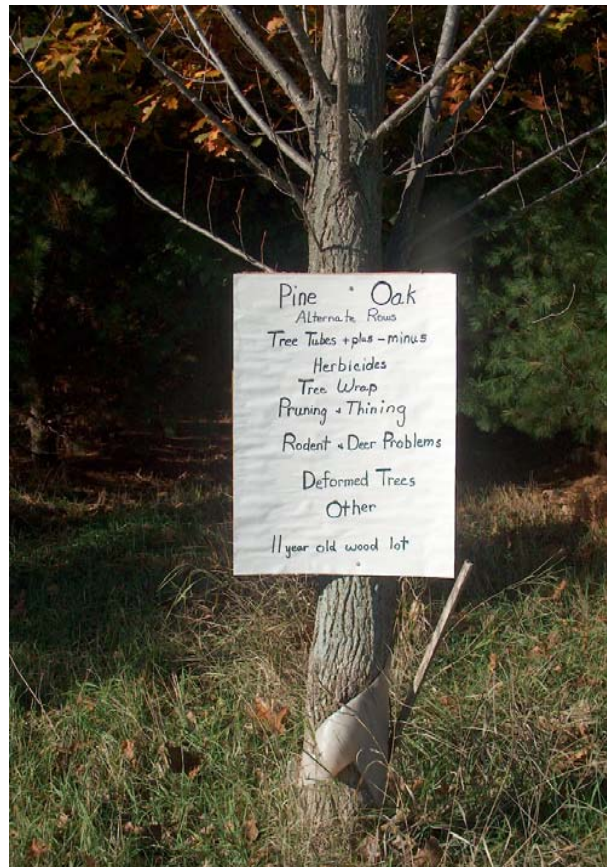 Pine · Oak
Alternate Rows
Tree Tubes + plus - minus
Herbicides
Tree Wrap
Pruning + Thining
Rodent + Deer Problems
Deformed Trees
Other
11 year old wood lot